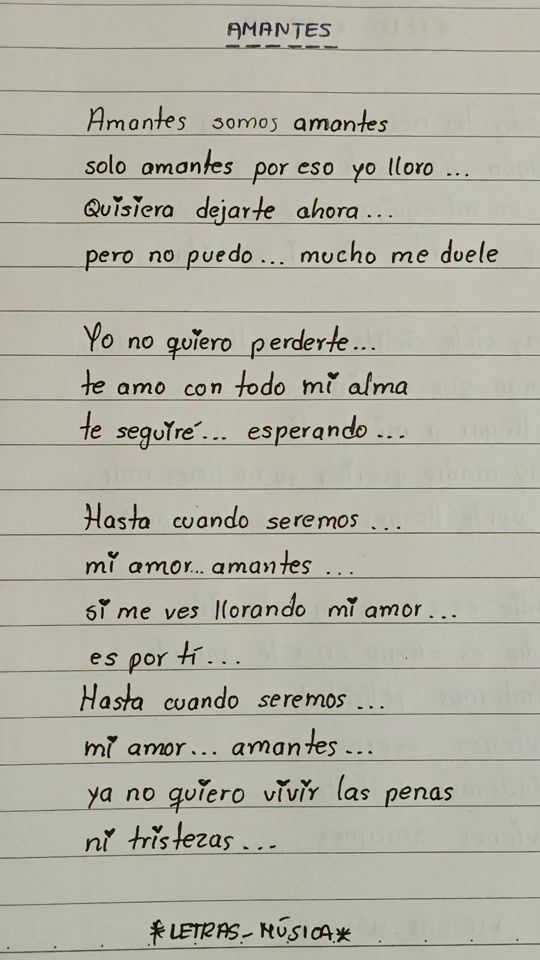 AMANTES
Amantes somos amantes
solo amantes por eso yo lloro...
Quisiera dejarte ahora...
pero no puedo... mucho me duele
Yo no quiero perderte...
te amo con todo mi alma
te seguiré... esperando...
Hasta cuando seremos...
mi amor... amantes...
si me ves llorando mi amor...
es por tí...
Hasta cuando seremos...
mi amor... amantes...
ya no quiero vivir las penas
ni tristezas...
*LETRAS-MÚSICA*